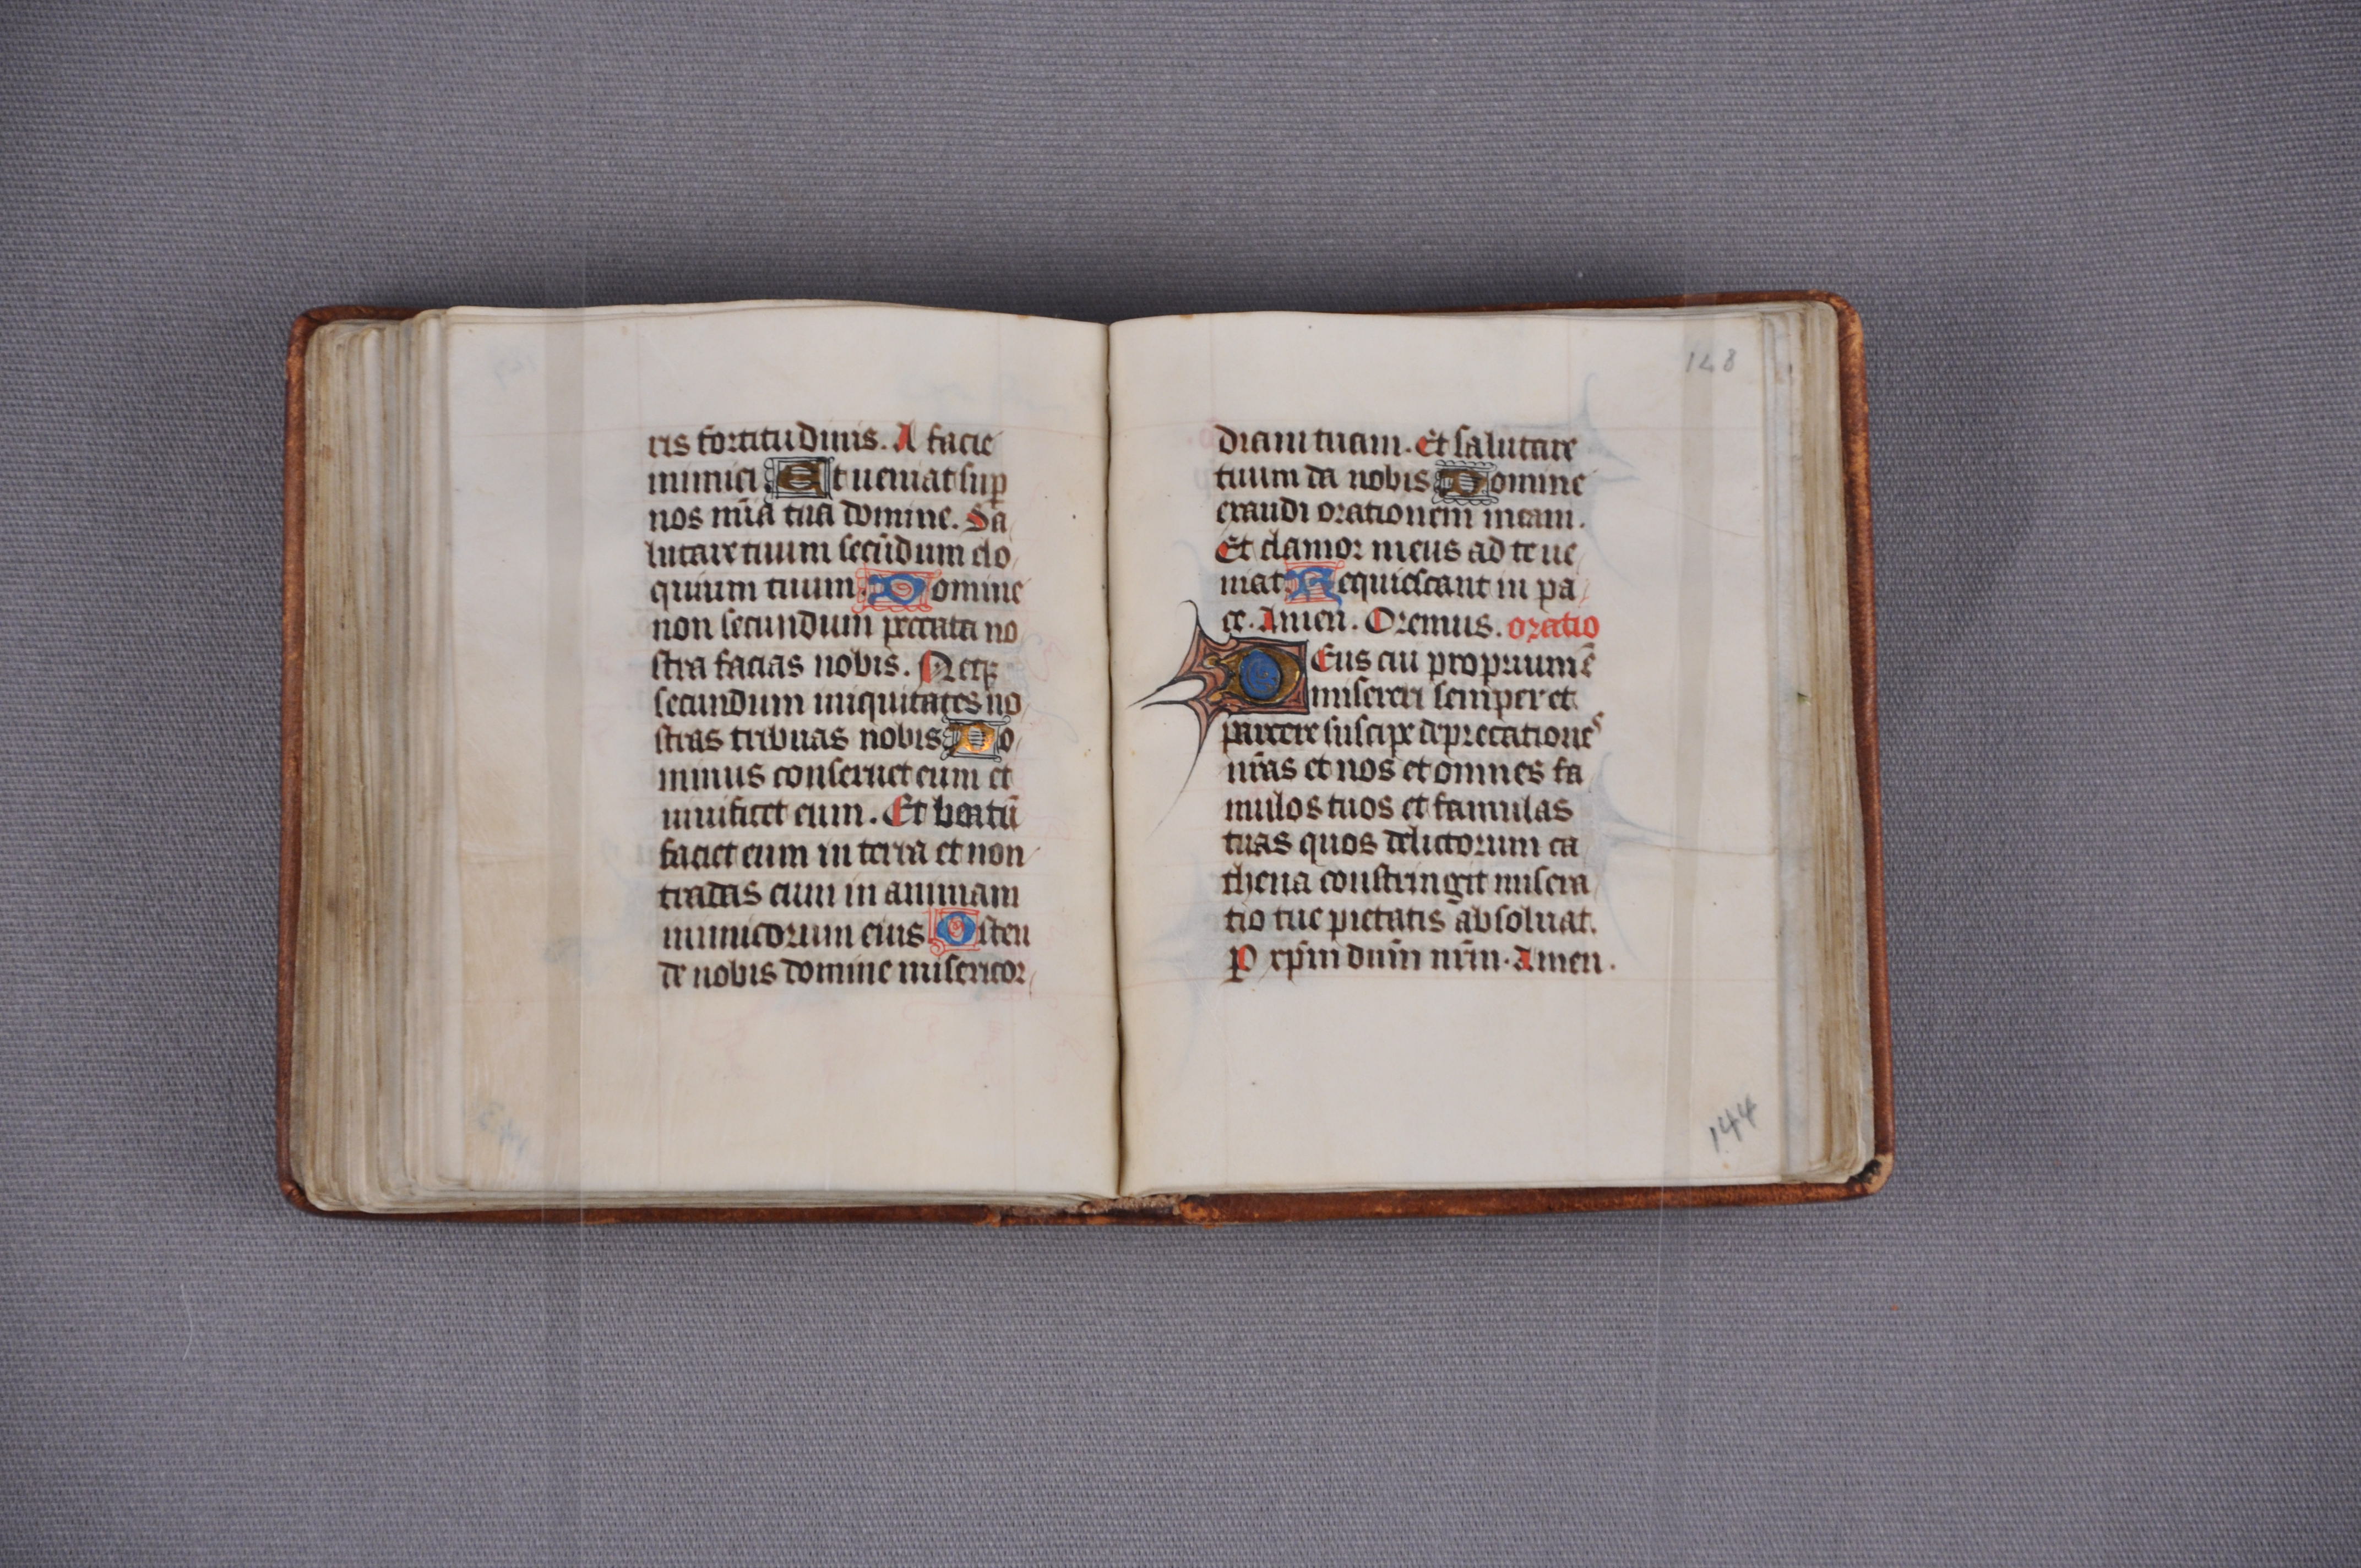 ris fortitudinis. A facie
inimici Et ueniat sup
nos mīa tua domine. Sa
lutare tuum secūdum elo
quium tuum. Domine
non secundum peccata no
stra facias nobis. Neq;
secundum iniquitates no
stras tribuas nobis Do
minus conseruet eum et
uiuificet eum. Et beatū
faciet eum in terra et non
tradas eum in animam
inimicorum eius Osten
de nobis domine misericor
148
diam tuam. Et salutare
tuum da nobis Domine
exaudi orationem meam.
Et clamor meus ad te ue
niat Requiescant in pa
ce. Amen. Oremus. oratio
DEus cui proprium ē
misereri semper et
parcere suscipe deprecationes
nr̄as et nos et omnes fa
mulos tuos et famulas
tuas quos delictorum ca
thena constringit misera
tio tue pietatis absoluat.
P xp̄m dūm nr̄m. Amen.
144